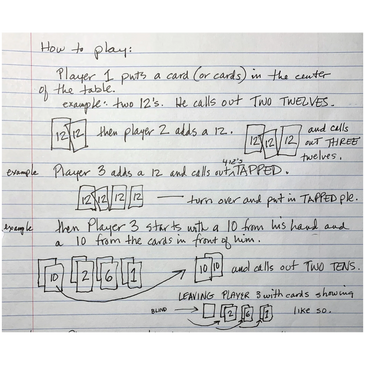 How to play:
Player 1 puts a card (or cards) in the center
of the table.
example: two 12's. He calls out TWO TWELVES.
12 12 then player 2 adds a 12. 12 12 12 and calls
out THREE
twelves.
example Player 3 adds a 12 and calls out 4 12's TAPPED.
12 12 12 12 — turn over and put in TAPPED pile.
example then Player 3 starts with a 10 from his hand and
a 10 from the cards in front of him.
10 2 6 1 10 10 and calls out TWO TENS.
LEAVING PLAYER 3 with cards showing
BLIND → 2 6 1 like so.